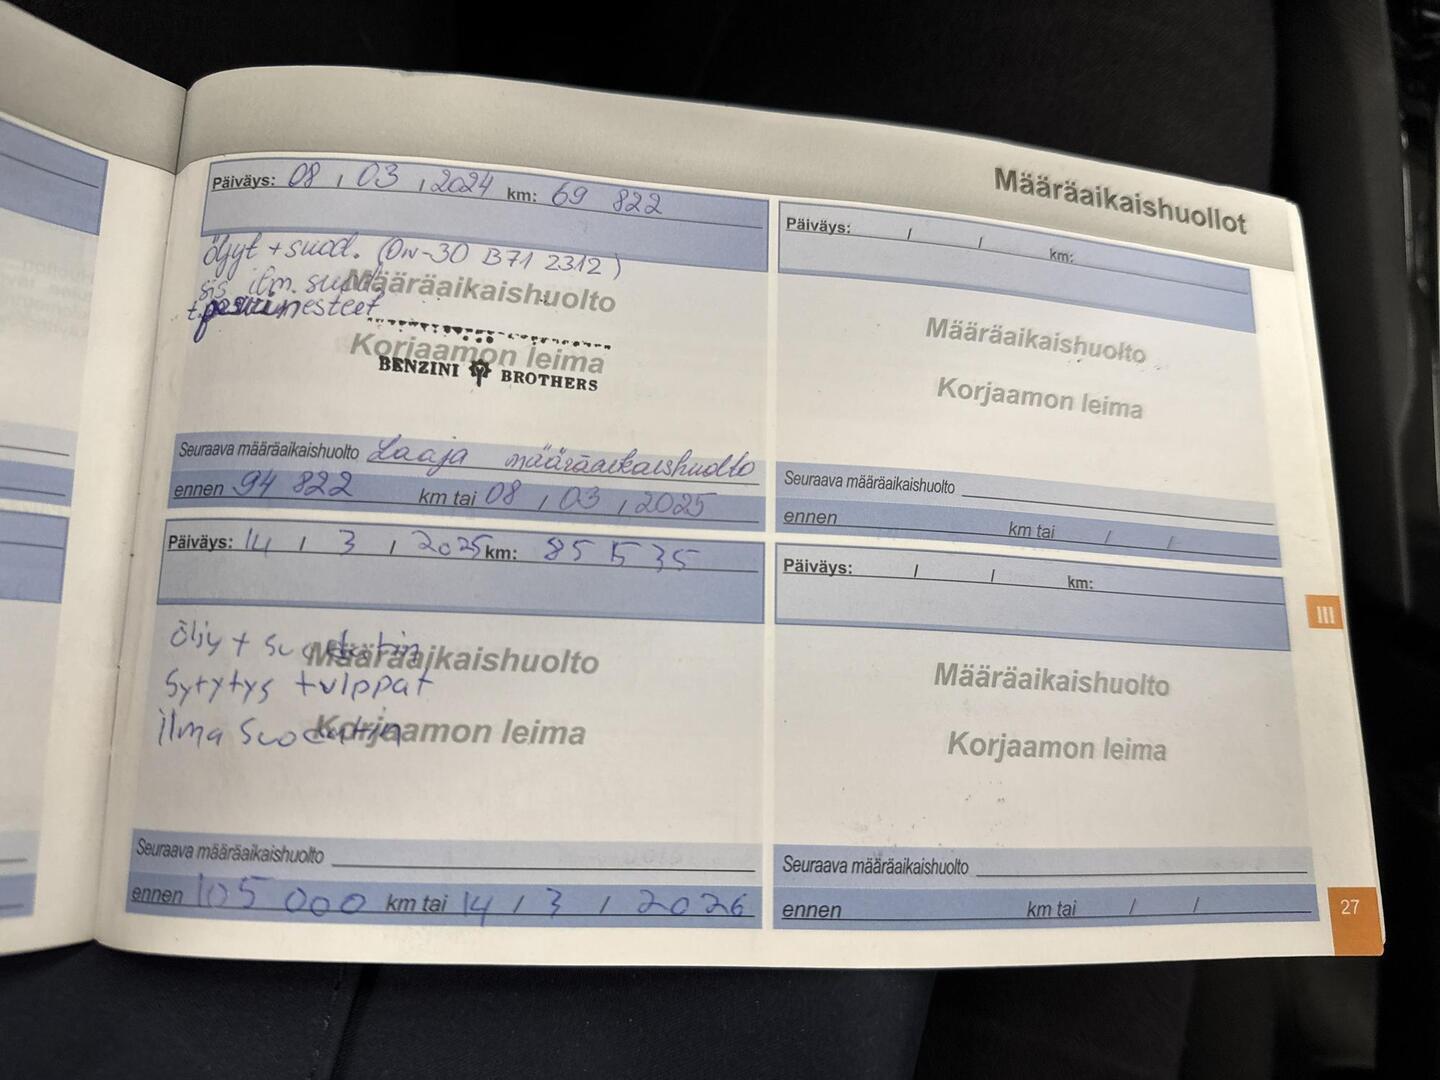 Määräaikaishuollot
Päiväys: 08 / 03 / 2024 km: 69 822
öljyt + suod. (0W-30 B71 2312)
sis ilm. suod.
+ pesunesteet
Määräaikaishuolto
Korjaamon leima
BENZINI BROTHERS
Seuraava määräaikaishuolto Laaja määräaikaishuolto
ennen 94 822 km tai 08 / 03 / 2025
Päiväys: 14 / 3 / 2025 km: 85 535
öljy + suodatin
Määräaikaishuolto
Sytytys tulppat
ilma suodatin
Korjaamon leima
Seuraava määräaikaishuolto
ennen 105 000 km tai 14 / 3 / 2026
Päiväys: / / km:
Määräaikaishuolto
Korjaamon leima
Seuraava määräaikaishuolto
ennen km tai / /
Päiväys: / / km:
Määräaikaishuolto
Korjaamon leima
Seuraava määräaikaishuolto
ennen km tai / /
III
27